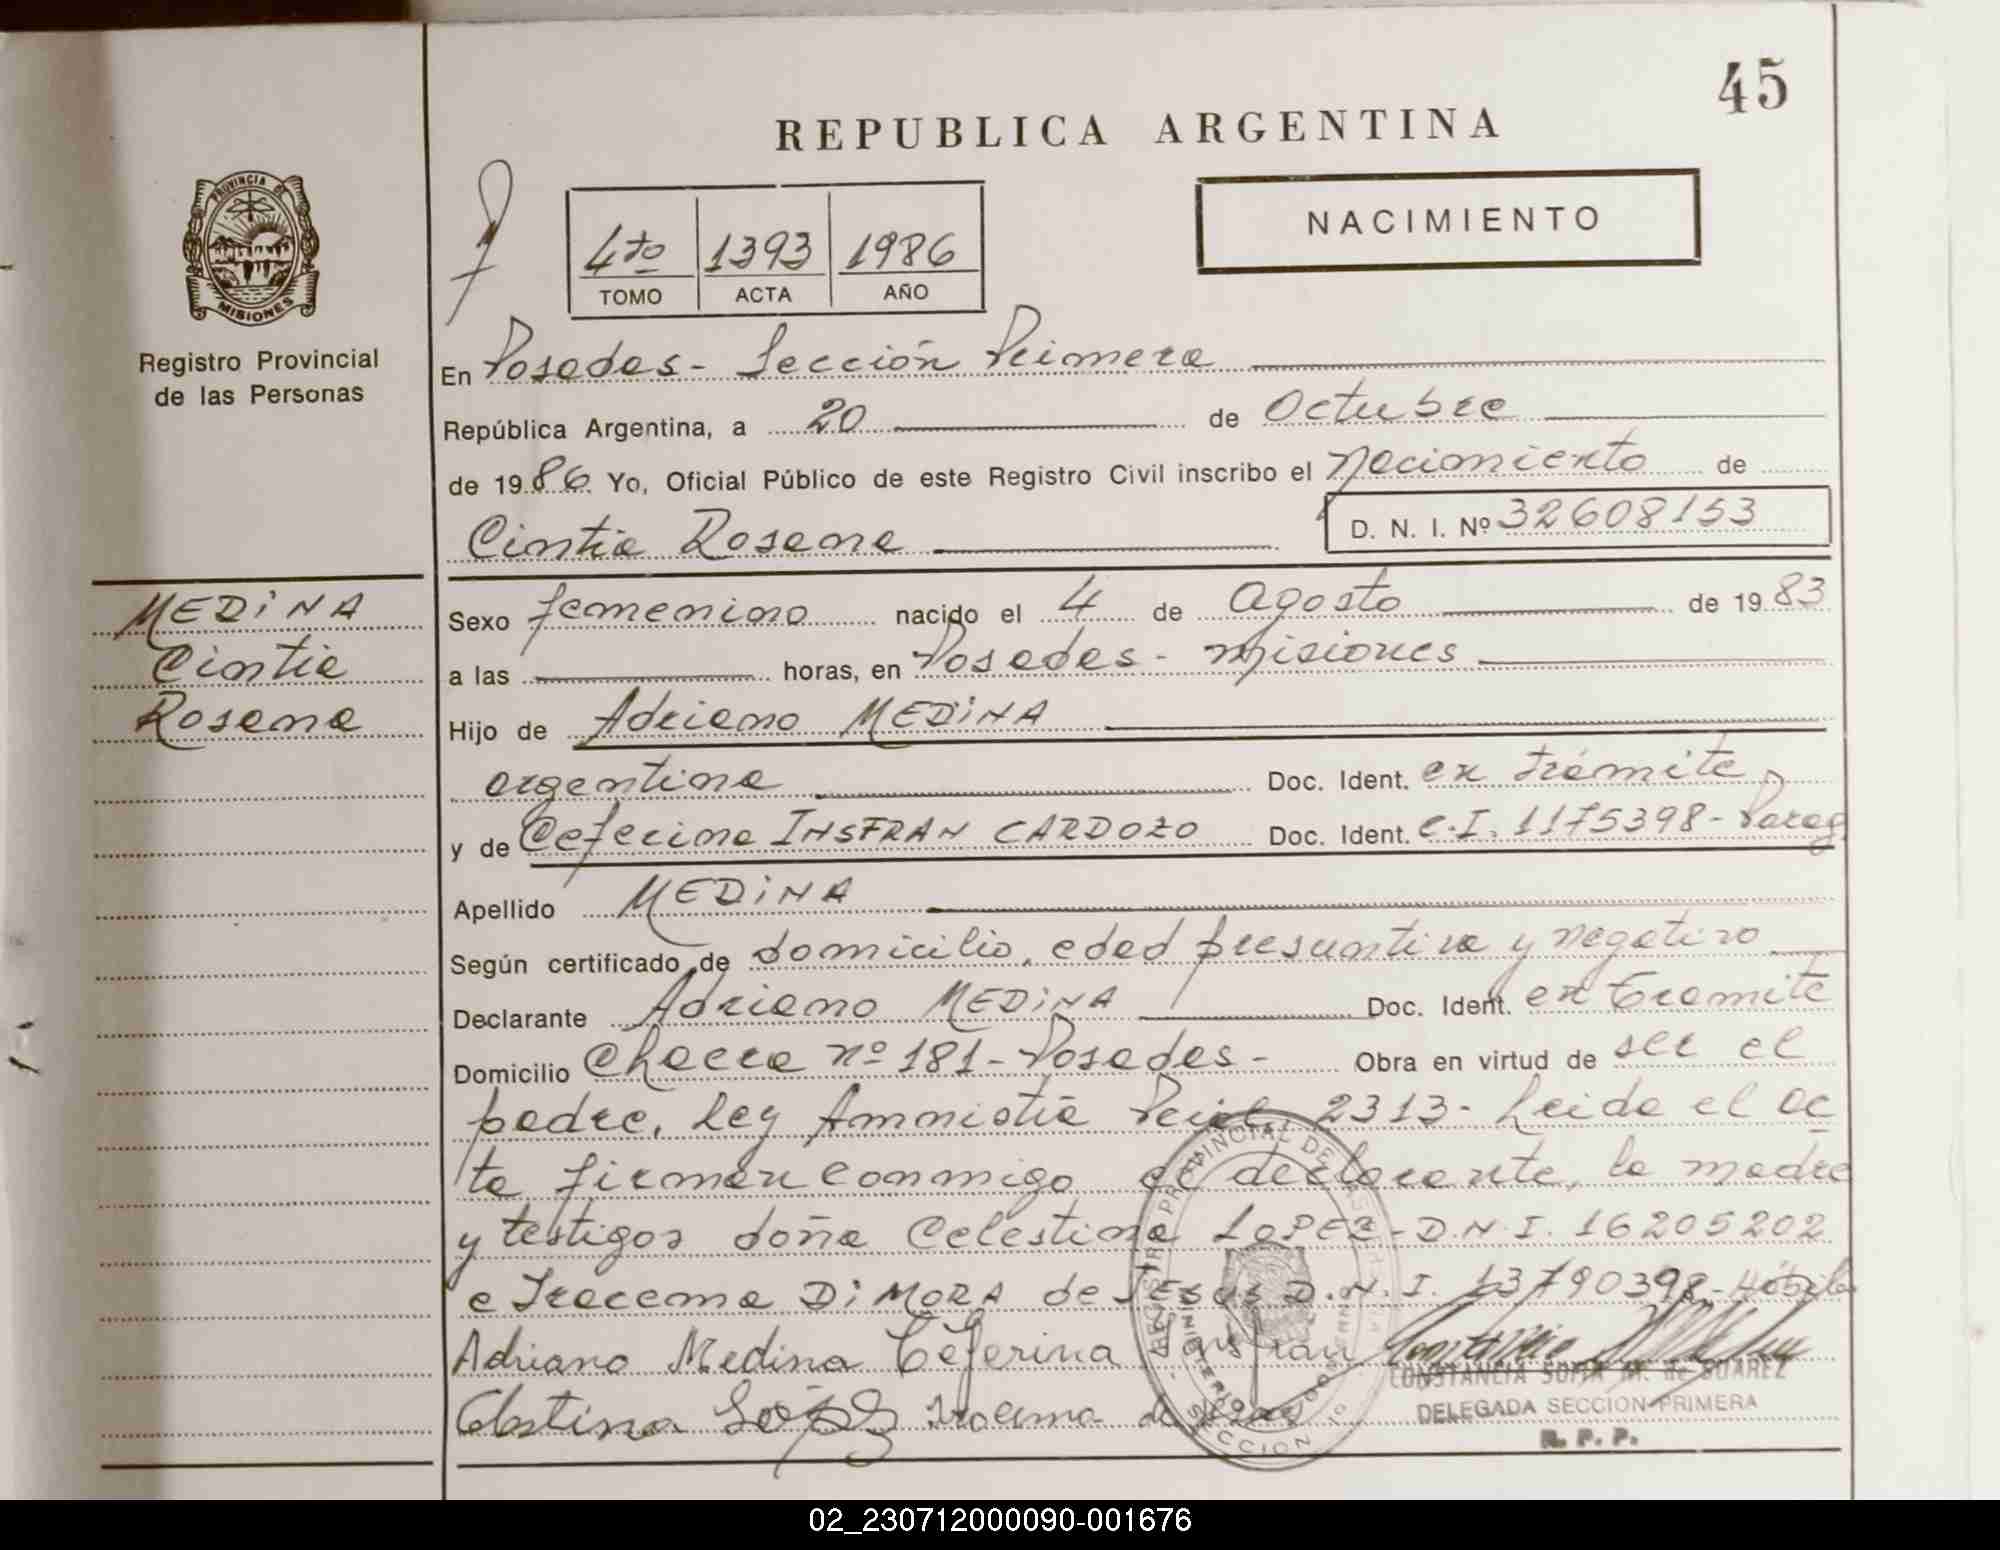 45
REPUBLICA ARGENTINA
NACIMIENTO
4to 1393 1986
TOMO ACTA AÑO
PROVINCIA DE MISIONES
Registro Provincial
de las Personas
En Posadas - Sección Primera
República Argentina, a 20 de Octubre
de 1986 Yo, Oficial Público de este Registro Civil inscribo el Nacimiento de
Cintia Rosana D. N. I. Nº 32608153
MEDINA
Cintia
Rosana
Sexo femenino nacido el 4 de Agosto de 1983
a las horas, en Posadas - Misiones
Hijo de Adriano MEDINA
argentina Doc. Ident. en trámite
y de Ceferina INSFRAN CARDOZO Doc. Ident. C.I. 1175398 - Parag.
Apellido MEDINA
Según certificado de domicilio, edad presuntiva y negativo
Declarante Adriano MEDINA Doc. Ident. en tramite
Domicilio Chacra nº 181 - Posadas - Obra en virtud de ser el
padre, Ley Amnistia Pcial 2313 - Leida el ac
ta firman conmigo el declarante, la madre
y testigos doña Celestina LOPEZ - D.N.I. 16205202
e Iracema DI MORA de JESUS D.N.I. 13790398 - Hábiles
Adriano Medina Ceferina Insfran
Celestina López Iracema de Jesus
CONSTANCIA SOFIA M. de SUAREZ
DELEGADA SECCION PRIMERA
R. P. P.
02_230712000090-001676